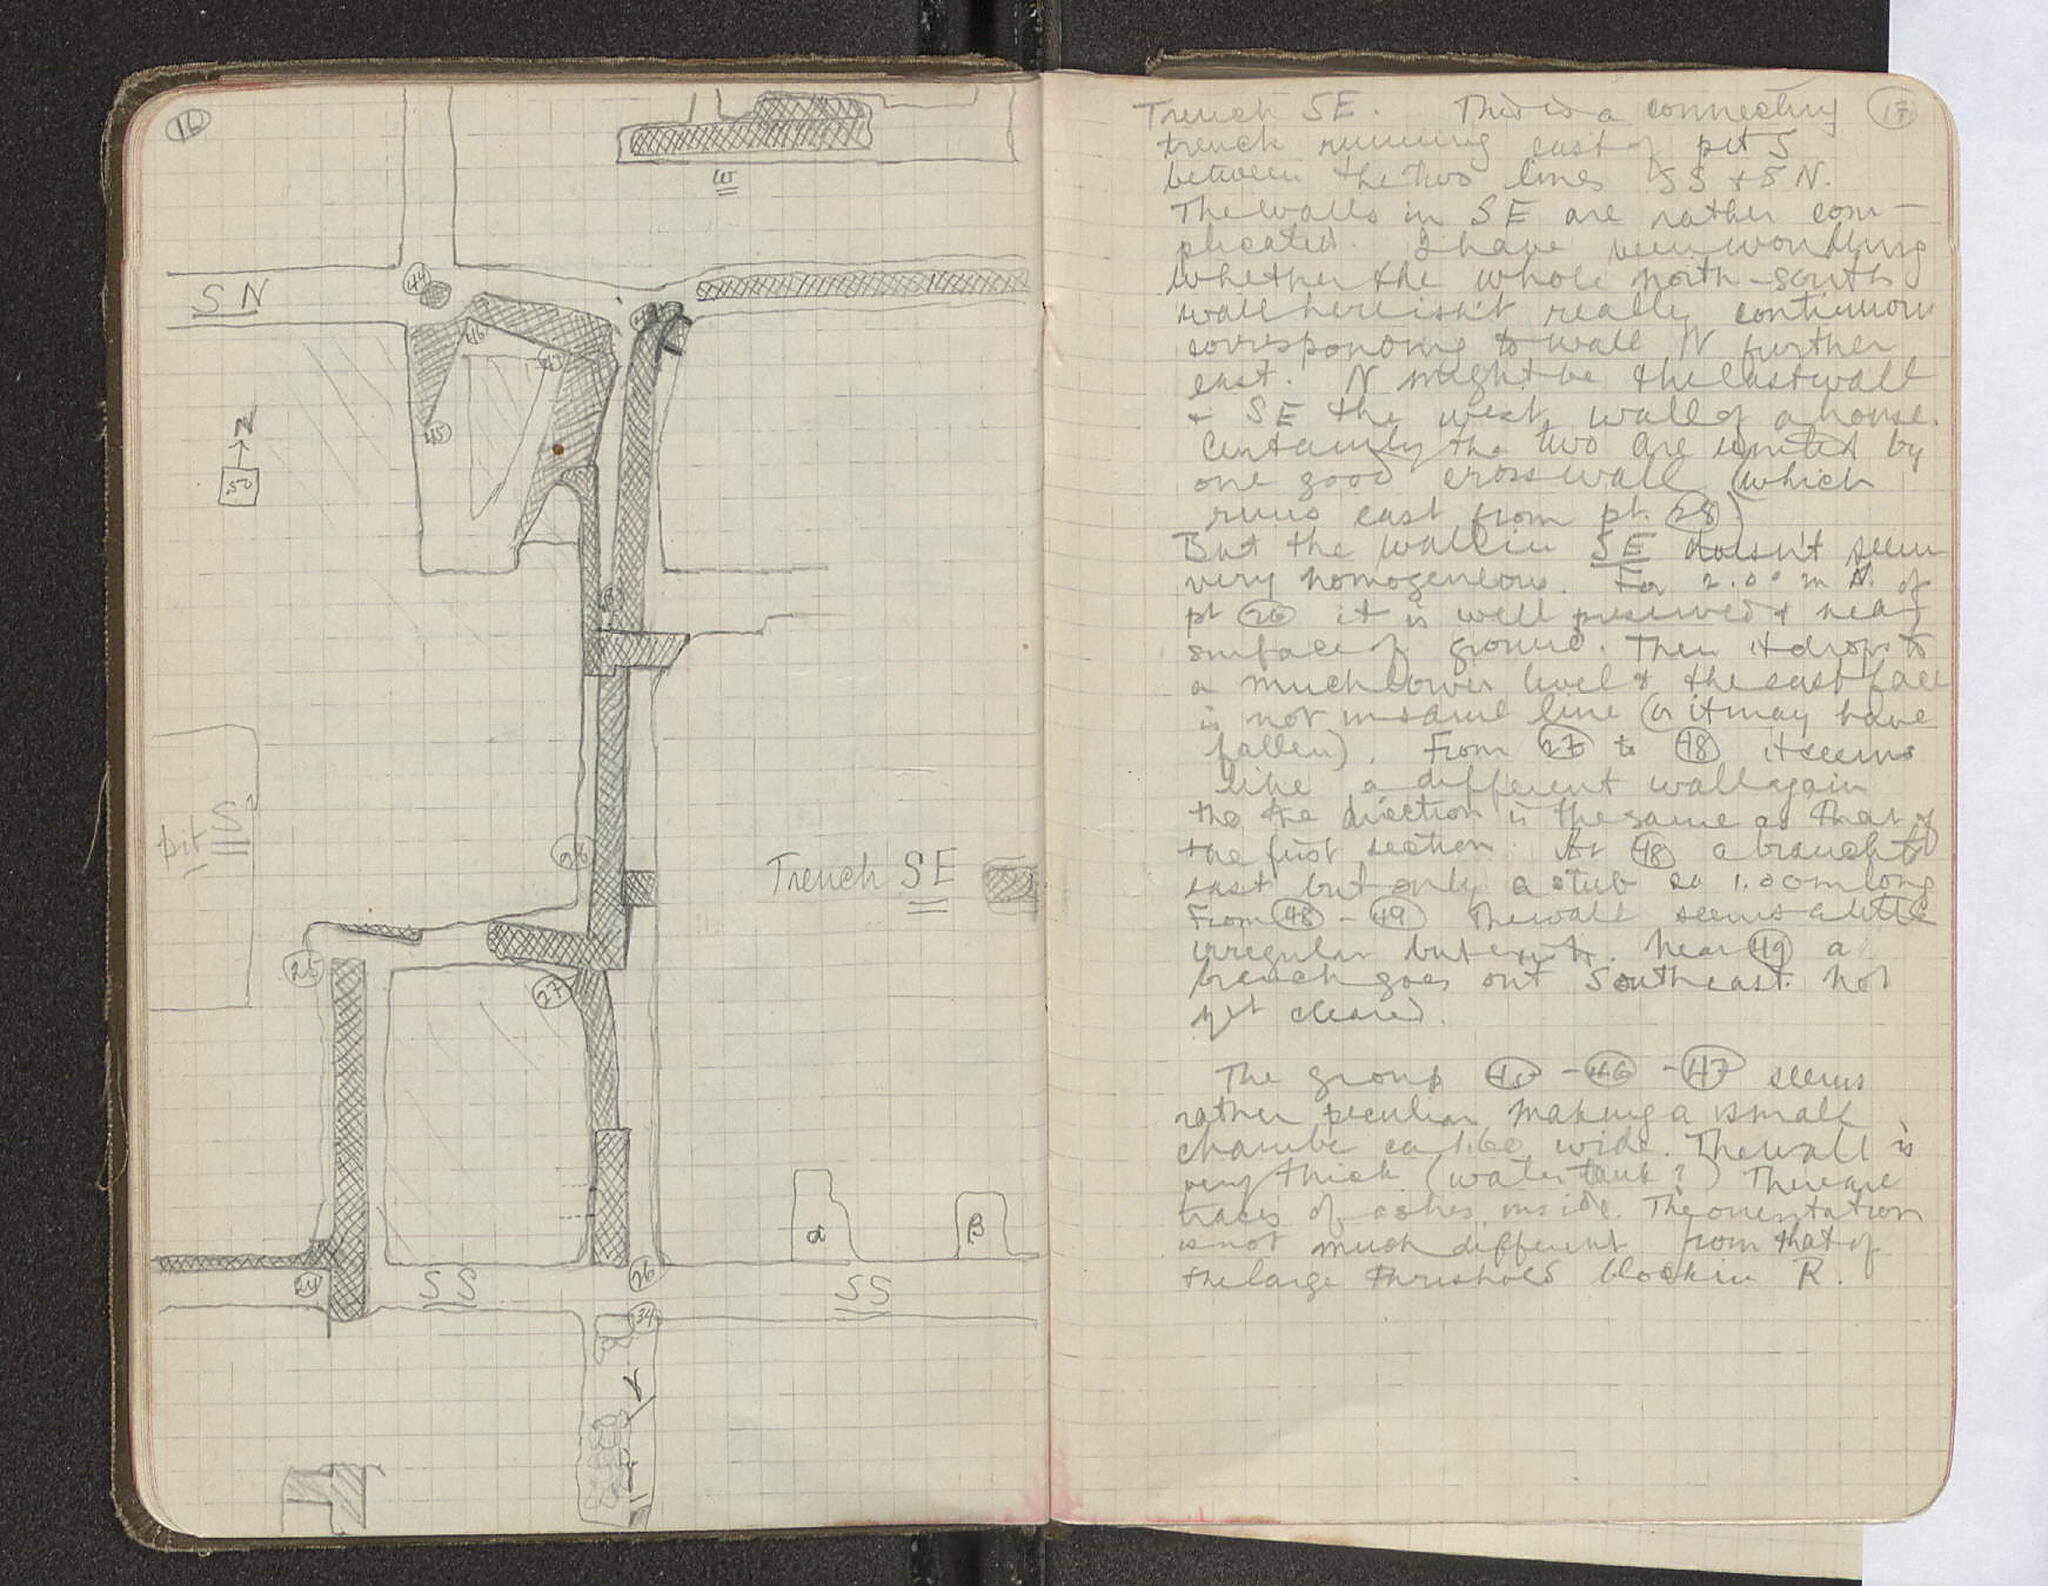 16
w
44
S N
46
47
45
N
50
48
pit S
28
Trench SE
25
27
α
β
24
S S
26
SS
34
γ
17
Trench SE. This is a connecting
trench running east of pit S
between the two lines SS + SN.
The walls in SE are rather com-
plicated. I have been wondering
whether the whole north-south
wall here isn't really continuous
corresponding to wall N further
east. N might be the east wall
+ SE the west wall of a house.
Certainly the two are united by
one good cross wall (which
runs east from pt. 28)
But the wall in SE doesn't seem
very homogeneous. For 2.00 m N. of
pt 26 it is well preserved + near
surface of ground. Then it drops to
a much lower level & the east face
is not in same line (or it may have
fallen). From 27 to 48 it seems
like a different wall again
tho the direction is the same as that of
the first section. At 48 a branch to
east but only a stub ca 1.00m long
From 48 - 49 the wall seems a little
irregular but exists. Near 49 a
branch goes out Southeast. Not
yet cleared.
The group 45 - 46 - 47 seems
rather peculiar making a small
chambe ca 1.60 wide. The wall is
very thick (water tank?) There are
traces of ashes inside. The orientation
is not much different from that of
the large threshold block in R.